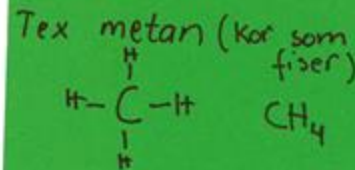 Tex metan (kor som
fiser)
H
H-C-H
H
CH₄